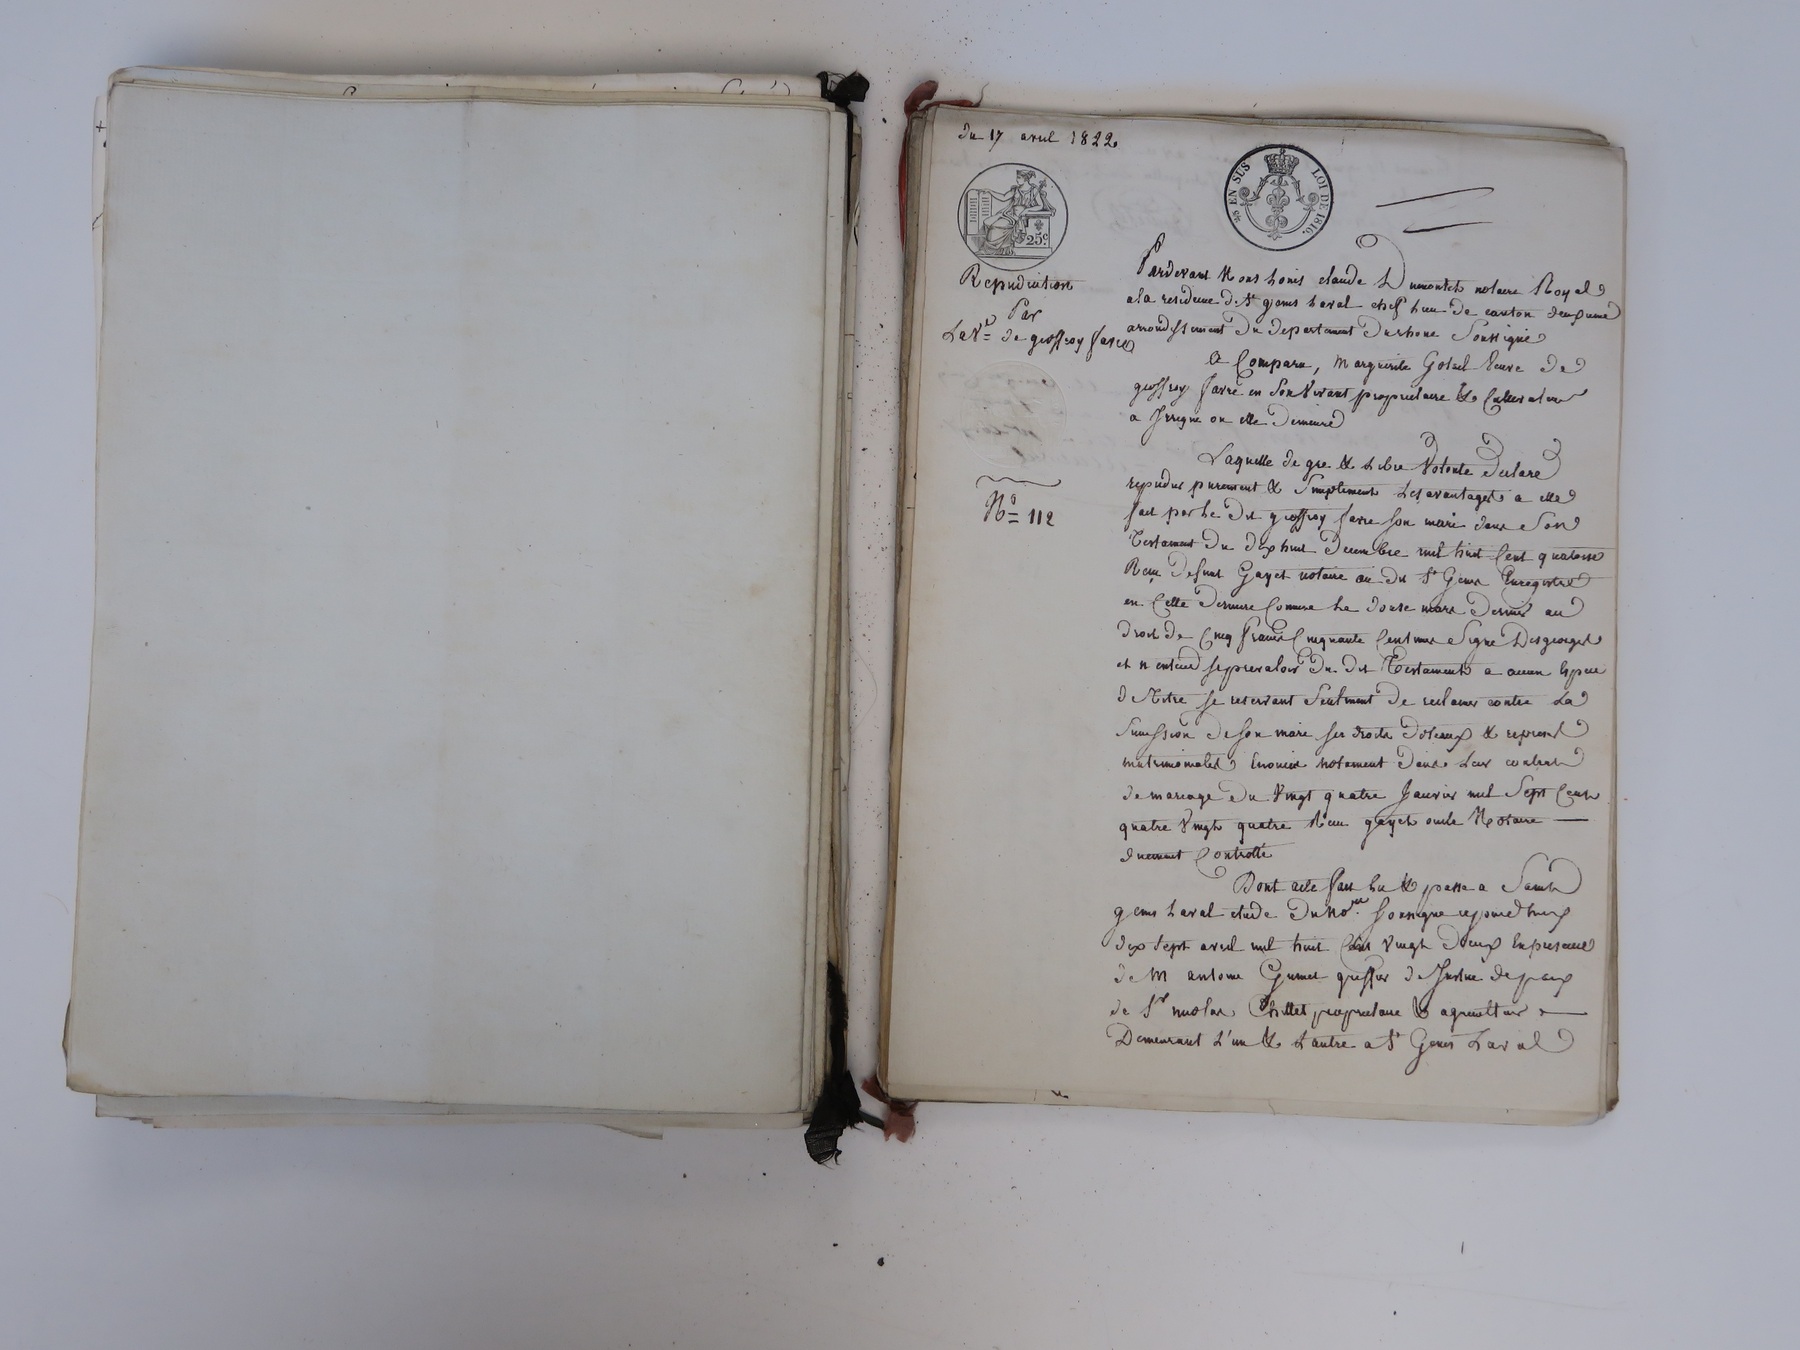 du 17 avril 1822
EN SUS LOI DE 1816.
25c
Repudiation
Par
La Ve de geoffroy favre
No 112
Pardevant Nous Louis claude Dumontet notaire Royal
a la residence de St genis Laval chef lieu de canton deuxieme
arrondissement du departement du rhone Soussigné
A Comparu, Marguerite Veuve de
geoffroy favre en Son Vivant proprietaire & Cultivateur
a Irigny ou elle Demeure
Laquelle de gre & Libre Volonte declare
repudier purement & Simplement Les avantages a elle
fait par Le dit geoffroy favre Son mari dans Son
Testament du dix huit Decembre mil huit Cent quatorze
Recu Defunt Gayet notaire au dit St Genis Enregistré
en Cette Derniere Comune Le douze mars Dernier au
droit de Cinq francs Cinquante Centimes Signe Desgeorges
et n entend se prevaloir du dit Testament a aucun Espece
de Titre se reservant Seulement de reclamer contre La
Succession de Son mari ses droits Dotaux & reprises
matrimoniales Enoncés notament dans Leur contrat
de mariage du Vingt quatre Janvier mil Sept Cent
quatre Vingt quatre Recu gayet oncle Notaire
duement Controllé
Dont acte fait Lu & passe a Saint
genis Laval etude du Nore Soussigne cejourdhuy
dix Sept avril mil huit Cent Vingt deux En presence
de M antoine greffier de Justice de paix
de Sr nicolas Chillet proprietaire & agriculteur
Demeurant L'un & L'autre a St Genis Laval